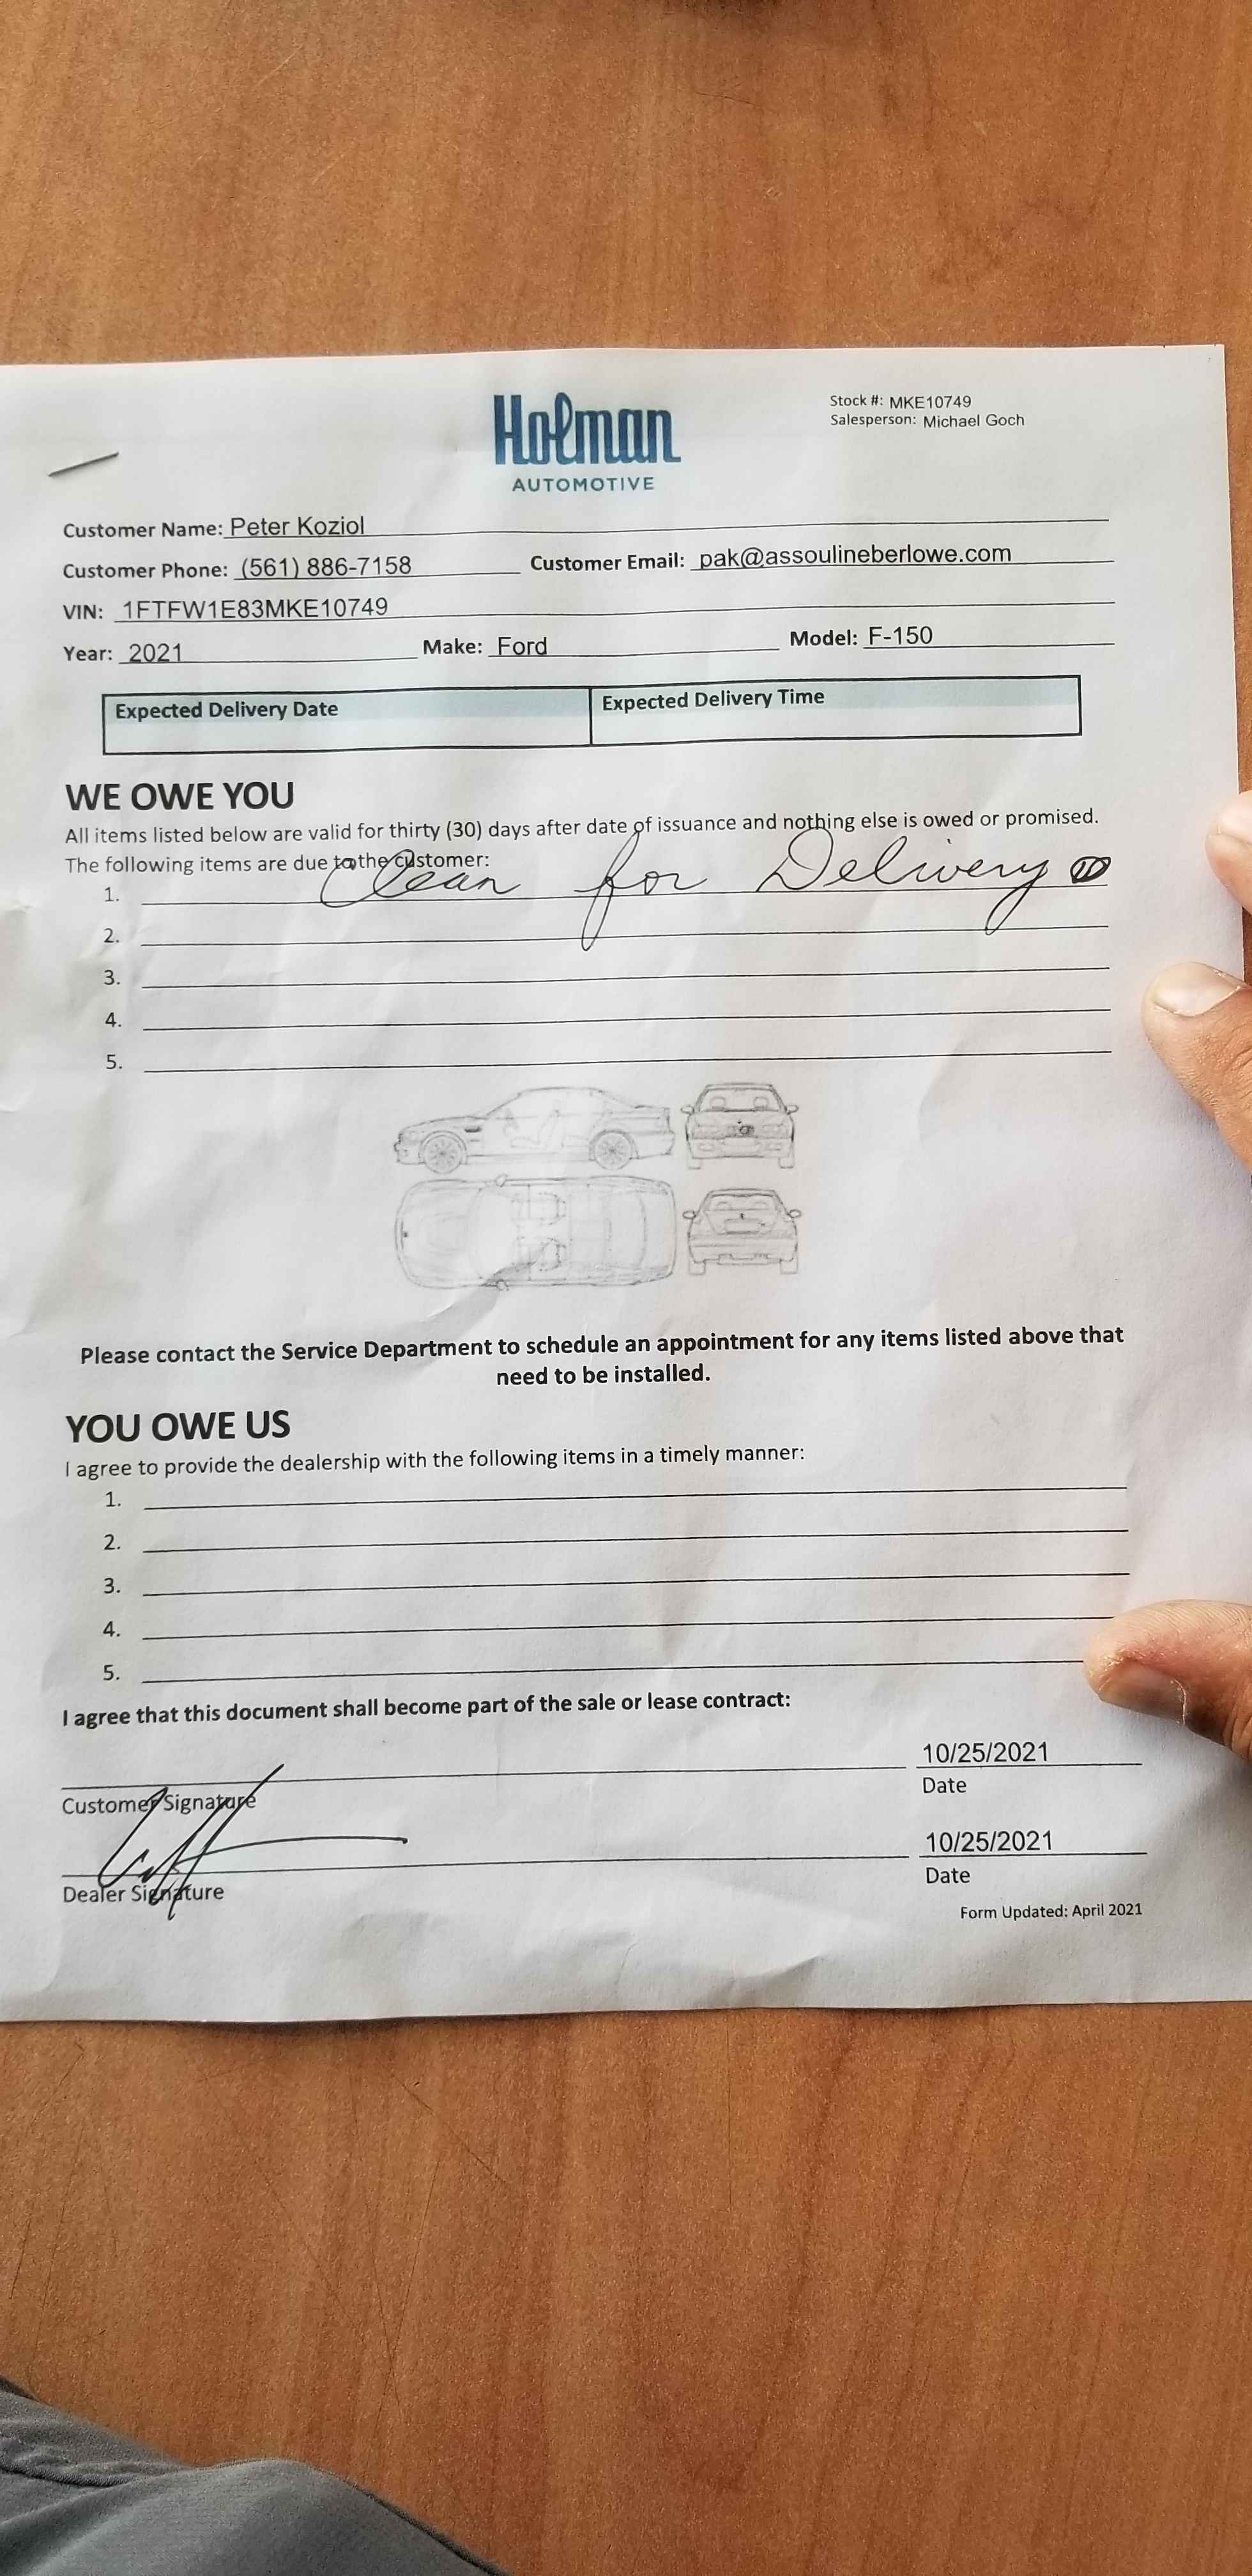 Holman
AUTOMOTIVE
Stock #: MKE10749
Salesperson: Michael Goch
Customer Name: Peter Koziol
Customer Phone: (561) 886-7158 Customer Email: pak@assoulineberlowe.com
VIN: 1FTFW1E83MKE10749
Year: 2021 Make: Ford Model: F-150
Expected Delivery Date Expected Delivery Time
WE OWE YOU
All items listed below are valid for thirty (30) days after date of issuance and nothing else is owed or promised.
The following items are due to the customer:
1. Clean for Delivery
2.
3.
4.
5.
Please contact the Service Department to schedule an appointment for any items listed above that
need to be installed.
YOU OWE US
I agree to provide the dealership with the following items in a timely manner:
1.
2.
3.
4.
5.
I agree that this document shall become part of the sale or lease contract:
10/25/2021
Customer Signature Date
10/25/2021
Dealer Signature Date
Form Updated: April 2021